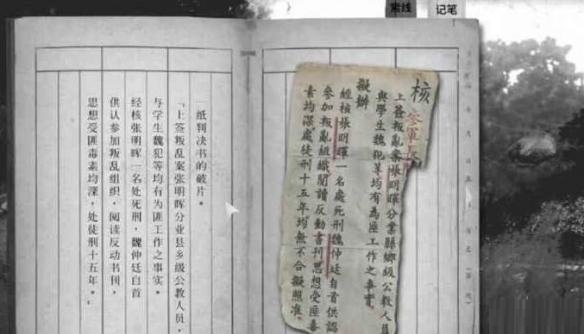 线索
记笔
纸判决书的破片。
「上签叛乱案张明晖分业县乡级公教人员,
与学生魏犯等均有为匪工作之事实。
经核张明晖一名处死刑,魏仲廷自首
供认参加叛乱组织,阅读反动书刊,
思想受匪毒素均深,处徒刑十五年。
核
上簽叛亂案張明暉分業縣鄉級公教人員
與學生魏犯等均有為匪工作之事實
擬辦
經核張明暉一名處死刑魏仲廷自首供認
參加叛亂組織閱讀反動書刊思想受匪毒
素均深處徒刑十五年均無不合擬照准